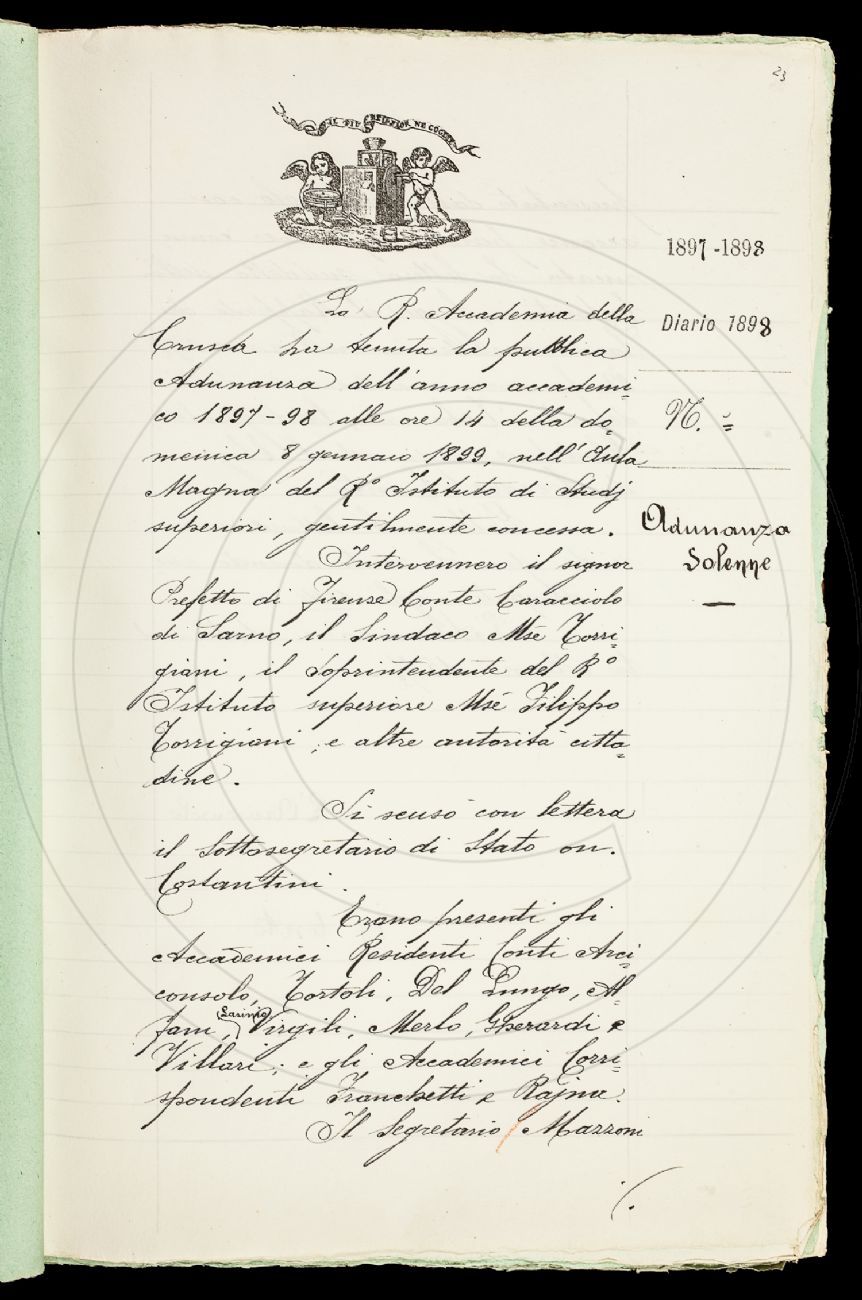 23
IL PIÙ BEL FIOR NE COGLIE
1897-1898
Diario 1898
N. =
Adunanza
Solenne
La R. Accademia della
Crusca ha tenuta la pubblica
Adunanza dell'anno accademi=
co 1897-98 alle ore 14 della do=
menica 8 gennaio 1899, nell'Aula
Magna del R.º Istituto di Studj
superiori, gentilmente concessa.
Intervennero il signor
Prefetto di Firenze Conte Caracciolo
di Sarno, il Sindaco Mse Torri=
giani, il Soprintendente del R.º
Istituto superiore Mse Filippo
Torrigiani; e altre autorità citta=
dine.
Si scusò con lettera
il Sottosegretario di Stato on.
Costantini.
Erano presenti gli
Accademici Residenti Conti Arci=
consolo, Tortoli, Del Lungo, Al=
fani, (Larinio) Virgili, Merlo, Gherardi e
Villari; e gli Accademici Corri=
spondenti Franchetti e Rajna.
Il Segretario Mazzoni
./.